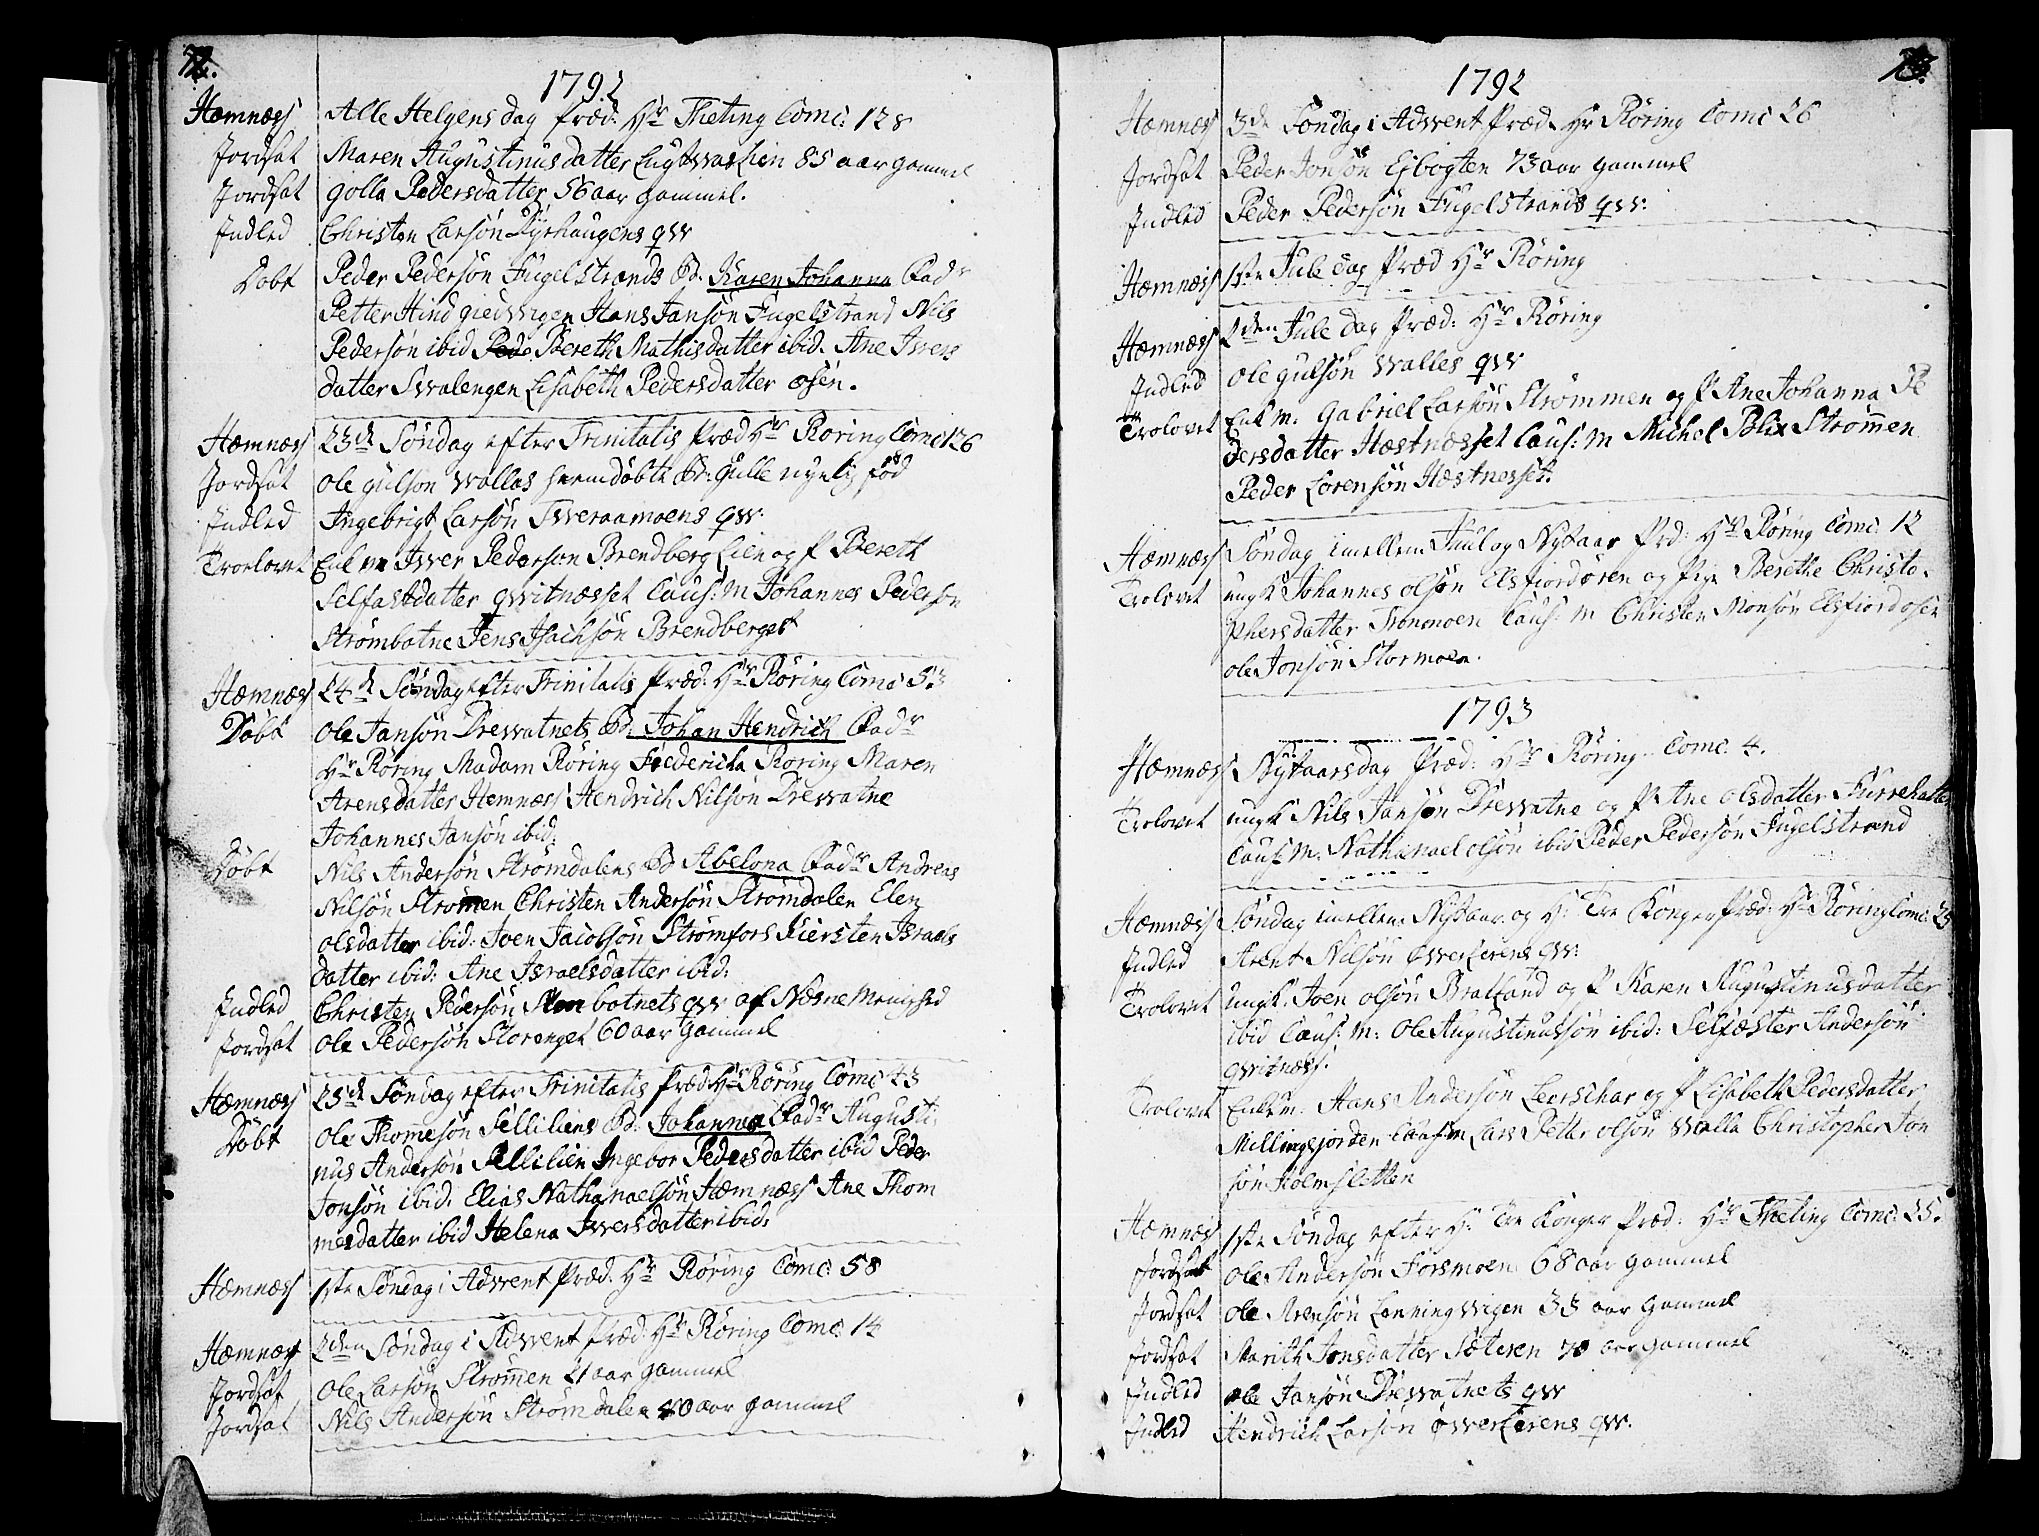 72.
1792
Hemnæss Alle Helgens dag Præd: Hr Theting Comc: 128
Jordfat Maren Augustinusdatter Lugtvaslien 85 aar gammel
Jordfat golla Pedersdatter 56 aar gammel.
Indled Christen Larsön Dyrhaugens qw
Döbt Peder Pedersön Fugelstrands B: Karen Johanna Fadr
Petter Hind giedvigen Hans Jansön Fugelstrand Nils
Pedersön ibid Bereth Mathisdatter ibid. Ane Ivers
datter Svalengen Lisabeth Pedersdatter osen.
Hæmnæss 23de Söndag efter Trinitatis Præd Hr Röring Comc 126
Jordfat Ole gulsön Vallas hiemdöbte B: gulle nylig föd
Indled Ingebrigt Larsön Tveraamoens qw.
Troelovet Enk m Iver Pedersen Brendberg Lien og P Bereth
Selfastdatter qvitnæsset Caus: m Johannes Pedersön
Strömbotne Jens Isachsön Brendberget
Hæmnæss 24de Söndag efter Trinitatis Præd: Hr Röring Comc 53
Döbt Ole Jansön Drevvatnets B: Johan Hendrich Fadr
Hr Röring Madam Röring Fredericka Röring Maren
Arensdatter Hemnæss Hendrich Nilsön Drevvatne
Johannes Jansön ibid:
Döbt Nils Andersön Strömdalens B Abelona Fadr Andreas
Nilsön Strömen Christen Andersön Strömdalen Elen
olsdatter ibid: Joen Jacobsön Strömfors Kiersten Israels
datter ibid: Ane Israelsdatter ibid:
Indled Christen Pedersön botnets qw af Nesne Menighed
Jordfat Ole Pedersön Storenget 60 aar gammel
Hæmnæss 25de Söndag efter Trinitatis Præd Hr Röring Comc 43
Döbt Ole Thomesön Selliliens B: Johanna Fadr Augusti
nus Andersön Sellilien Ingebor Pedersdatter ibid Peder
Jonsön ibid: Elias Nathanaelsön Hæmnæss Ane Thom
mesdatter ibid Helena Iversdatter ibid:
Hæmnæss 1ste Söndag i Advent Præd: Hr Röring Comc: 58
Hæmnæss 2den Söndag i Advent Præd: Hr Röring Comc: 14
Jordfat Ole Larsön Strömen 21 aar gammel
Jordfat Nils Andersön Strömdalen 40 aar gammel
73.
1792
Hæmnæss 3de Söndag i Advent Præd. Hr Röring Comc 26
Jordfat Peder Jonsön Ejbogten 73 aar gammel
Indled Peder Pedersön Fugelstrands qw:
Hæmnæss 1ste Jule dag Præd Hr Röring
Hæmnæss 2den Jule dag Præd: Hr Röring
Indled Ole gulsön Valles qw
Trolovet Enk m: Gabriel Larsön Strömmen og P Ane Johanna Pe
dersdatter Hæstnæsset Caus: m Michel Blix Strömen
Peder Lorensön Hæstnesset.
Hæmnæss Söndag imellem Juul og Nytaar Prd: Hr Röring Comc: 12
Trolovet ungk Johannes olsön Elsfiordören og Pige Berethe Christo-
phersdatter Tronmoen Caus: m Christen Monsön Elsfiordosen
ole Jonsön Stormoen.
1793
Hæmnæss Nytaarsdag Præd: Hr Röring Comc. 4.
Trolovet ungk Nils Jansön Drevvatne og P: Ane olsdatter
Caus m: Nathanael olsön ibid Peder Pedersön Fugelstrand
Hæmnæss Söndag imellem Nytaar og H: Tre Konger Præd: Hr Röring Comc: 25
Indled Arent Nilsön qw:
Trolovet ungk: Joen olsön Bratland og P Karen Augustinusdatter
ibid Caus: m: Ole Augustinussön ibid: Selfæster Andersön
qvitnæss:
Trolovet Enk m: Hans Andersön Leerschar og P Lisabeth Pedersdatter
Millingsjorden Caus: m Lars Petter olsön Valla Christopher Jon
sön Holmsletten
Hæmnæs 1ste Söndag efter H: Tre Konger Præd: Hr Theting Comc: 35.
Jordfat Ole Andersön Forsmoen 68 aar gammel
Jordfat Ole Arensön Lenningvigen 33 aar gammel
Jordfat Marith Jonsdatter Sæteren 70 aar gammel
Indled Ole Jansön Drevvatnets qw
Indled Hendrich Larsön qw.